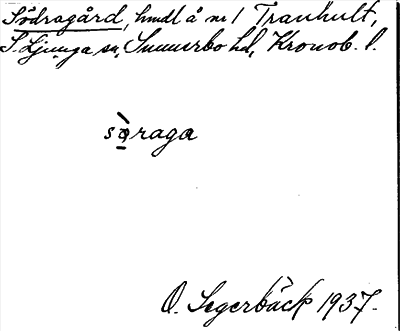 Södragård, hmdl å nr 1 Tranhult,
S. Ljunga sn, Sunnerbo hd, Kronob. l.
sǫ̀raga
O. Segerbäck 1937.